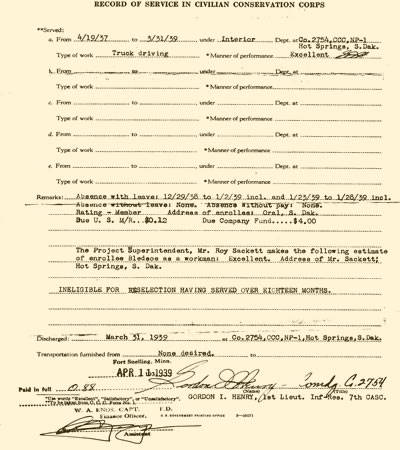 RECORD OF SERVICE IN CIVILIAN CONSERVATION CORPS
**Served:
a. From 4/19/37 to 3/31/39 under Interior Dept. at Co.2754,CCC,NP-1
Hot Springs, S.Dak.
Type of work Truck driving *Manner of performance Excellent
b. From to under Dept. at
Type of work *Manner of performance
c. From to under Dept. at
Type of work *Manner of performance
d. From to under Dept. at
Type of work *Manner of performance
e. From to under Dept. at
Type of work *Manner of performance
Remarks: Absence with leave: 12/29/38 to 1/2/39 incl. and 1/23/39 to 1/28/39 incl.
Absence without leave: None. Absence without pay: None.
Rating - Member Address of enrollee: Oral, S. Dak.
Due U. S. M/R...$0.12 Due Company Fund.....$4.00
The Project Superintendent, Mr. Roy Sackett makes the following estimate
of enrollee Bledsoe as a workman: Excellent. Address of Mr. Sackett;
Hot Springs, S. Dak.
INELIGIBLE FOR RESELECTION HAVING SERVED OVER EIGHTEEN MONTHS.
Discharged: March 31, 1939 at Co.2754,CCC,NP-1,Hot Springs,S.Dak.
Transportation furnished from None desired. to
Fort Snelling, Minn.
APR 1 1939
Gordon I Henry - Comdg Co. 2754
Paid in full 0.88 (Name) (Title)
GORDON I. HENRY, 1st Lieut. Inf-Res. 7th CASC.
*Use words "Excellent", "Satisfactory", or "Unsatisfactory".
W. A. ENOS. CAPT. F.D.
Finance Officer, U.S. GOVERNMENT PRINTING OFFICE
Assistant